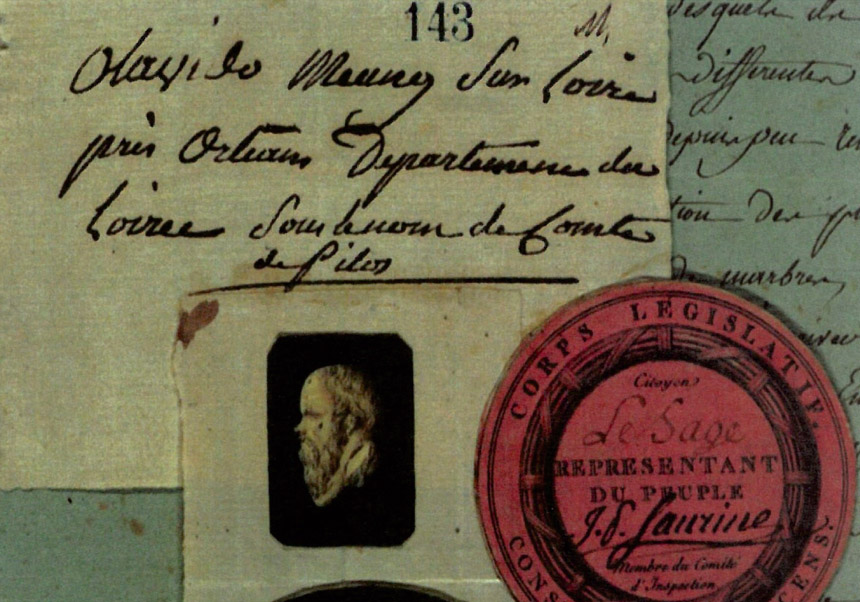 143
M,
Olavido Meung Sur Loire
près Orléans Departement du
Loiret Sous le nom de Comte
de Pilos
desquels
differentes
depuis peu
tion des
marbres,
avec
CORPS LEGISLATIF.
Citoyen
Le Sage
REPRESENTANT
DU PEUPLE
J. P. Saurine
Membre du Comité
d'Inspection
CONS
CENS.